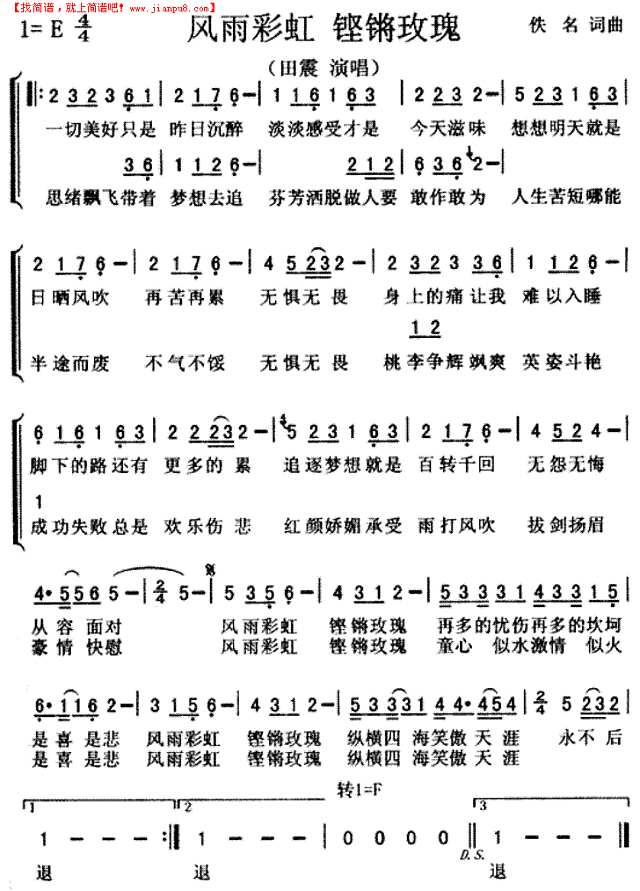 【找简谱，就上简谱吧!】
www.jianpu8.com
1= E 4/4
风雨彩虹 铿锵玫瑰
佚 名 词曲
（田震 演唱）
2 3 2 3 6 1 | 2 1 7 6 - | 1 1 6 1 6 3 | 2 2 3 2 - | 5 2 3 1 6 3 |
一切美好只是 昨日沉醉 淡淡感受才是 今天滋味 想想明天就是
3 6 | 1 - | 2 1 2 | 6 3 6 2 - |
思绪飘飞带着 梦想去追 芬芳洒脱做人要 敢作敢为 人生苦短哪能
2 1 7 6 - | 2 1 7 6 - | 4 5 2 3 2 - | 2 3 2 3 3 6 | 1 1 2 6 - |
日晒风吹 再苦再累 无惧无畏 身上的痛让我 难以入睡
1 2
半途而废 不气不馁 无惧无畏 桃李争辉飒爽 英姿斗艳
6 1 6 1 6 3 | 2 2 2 3 2 - | 5 2 3 1 6 3 | 2 1 7 6 - | 4 5 2 4 - |
脚下的路还有 更多的累 追逐梦想就是 百转千回 无怨无悔
1
成功失败总是 欢乐伤悲 红颜娇媚承受 雨打风吹 拔剑扬眉
4· 5 5 5 6 5 - | 2/4 5 - | 5 3 5 6 - | 4 3 1 2 - | 5 3 3 3 1 3 3 3 1 5 |
从容面对 风雨彩虹 铿锵玫瑰 再多的忧伤再多的坎坷
豪情快慰 风雨彩虹 铿锵玫瑰 童心 似水激情 似火
6· 1 1 1 6 2 - | 3 1 5 6 - | 4 3 1 2 - | 5 3 3 3 1 4 4 · 4 5 4 | 2/4 5 2 3 2 |
是喜是悲 风雨彩虹 铿锵玫瑰 纵横四 海笑傲 天涯 永不后
是喜是悲 风雨彩虹 铿锵玫瑰 纵横四 海笑傲 天涯
转1=F
1 2 3
1 - - - :| 1 - - - | 0 0 0 0 | 1 - - - ‖
D.S.
退 退 退